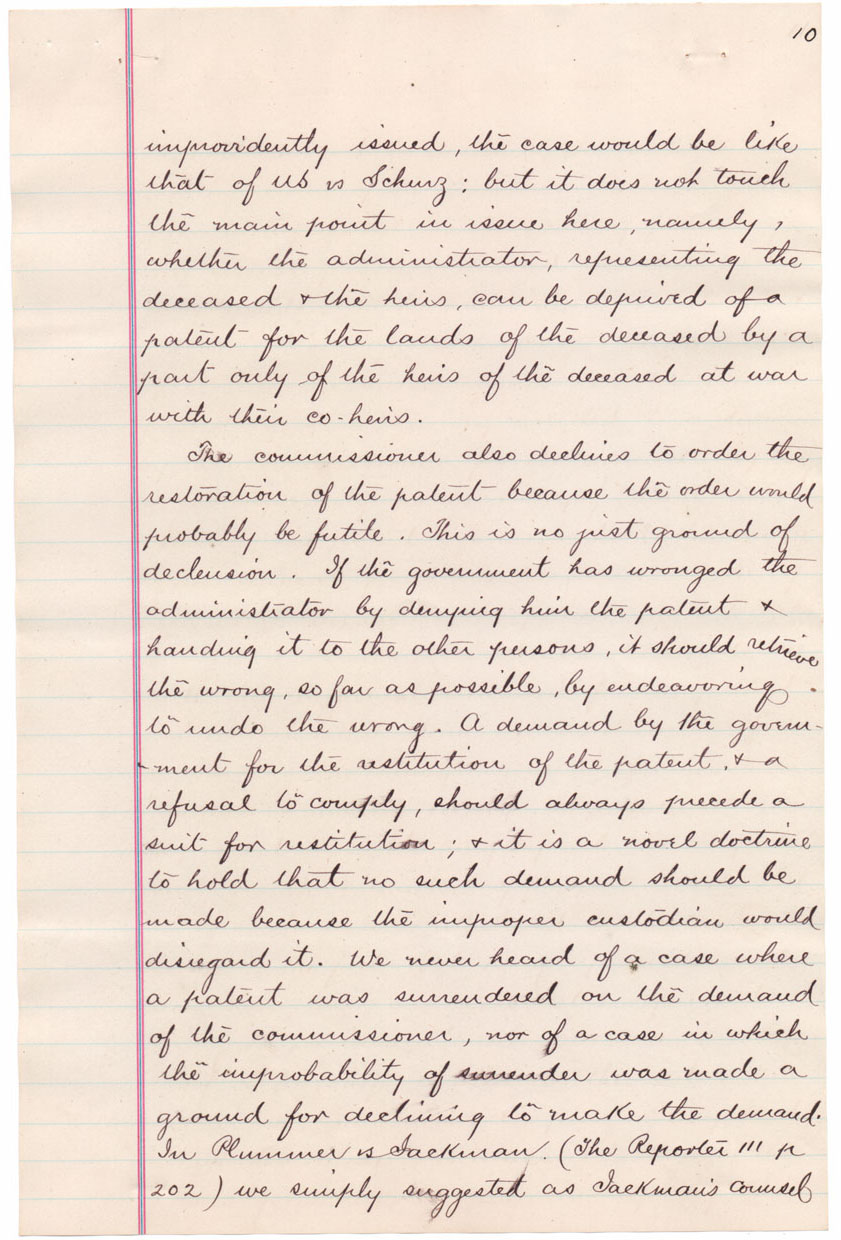 10
improvidently issued, the case would be like
that of US vs Schurz; but it does not touch
the main point in issue here, namely,
whether the administrator, representing the
deceased & the heirs, can be deprived of a
patent for the lands of the deceased by a
part only of the heirs of the deceased at war
with their co-heirs.
The commissioner also declines to order the
restoration of the patent because the order would
probably be futile. This is no just ground of
declension. If the government has wronged the
administrator by denying him the patent &
handing it to the other persons, it should retrieve
the wrong, so far as possible, by endeavoring
to undo the wrong. A demand by the govern-
-ment for the restitution of the patent, & a
refusal to comply, should always precede a
suit for restitution; & it is a novel doctrine
to hold that no such demand should be
made because the improper custodian would
disregard it. We never heard of a case where
a patent was surrendered on the demand
of the commissioner, nor of a case in which
the improbability of surrender was made a
ground for declining to make the demand.
In Plummer vs Jackman. (The Reporter 111 p
202) we simply suggested as Jackman's counsel